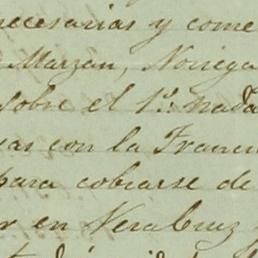 necesarias y come
Marzan, Noriega
sobre el 1º. nada
as con la Franci
para cobrarse de
r en VeraCruz